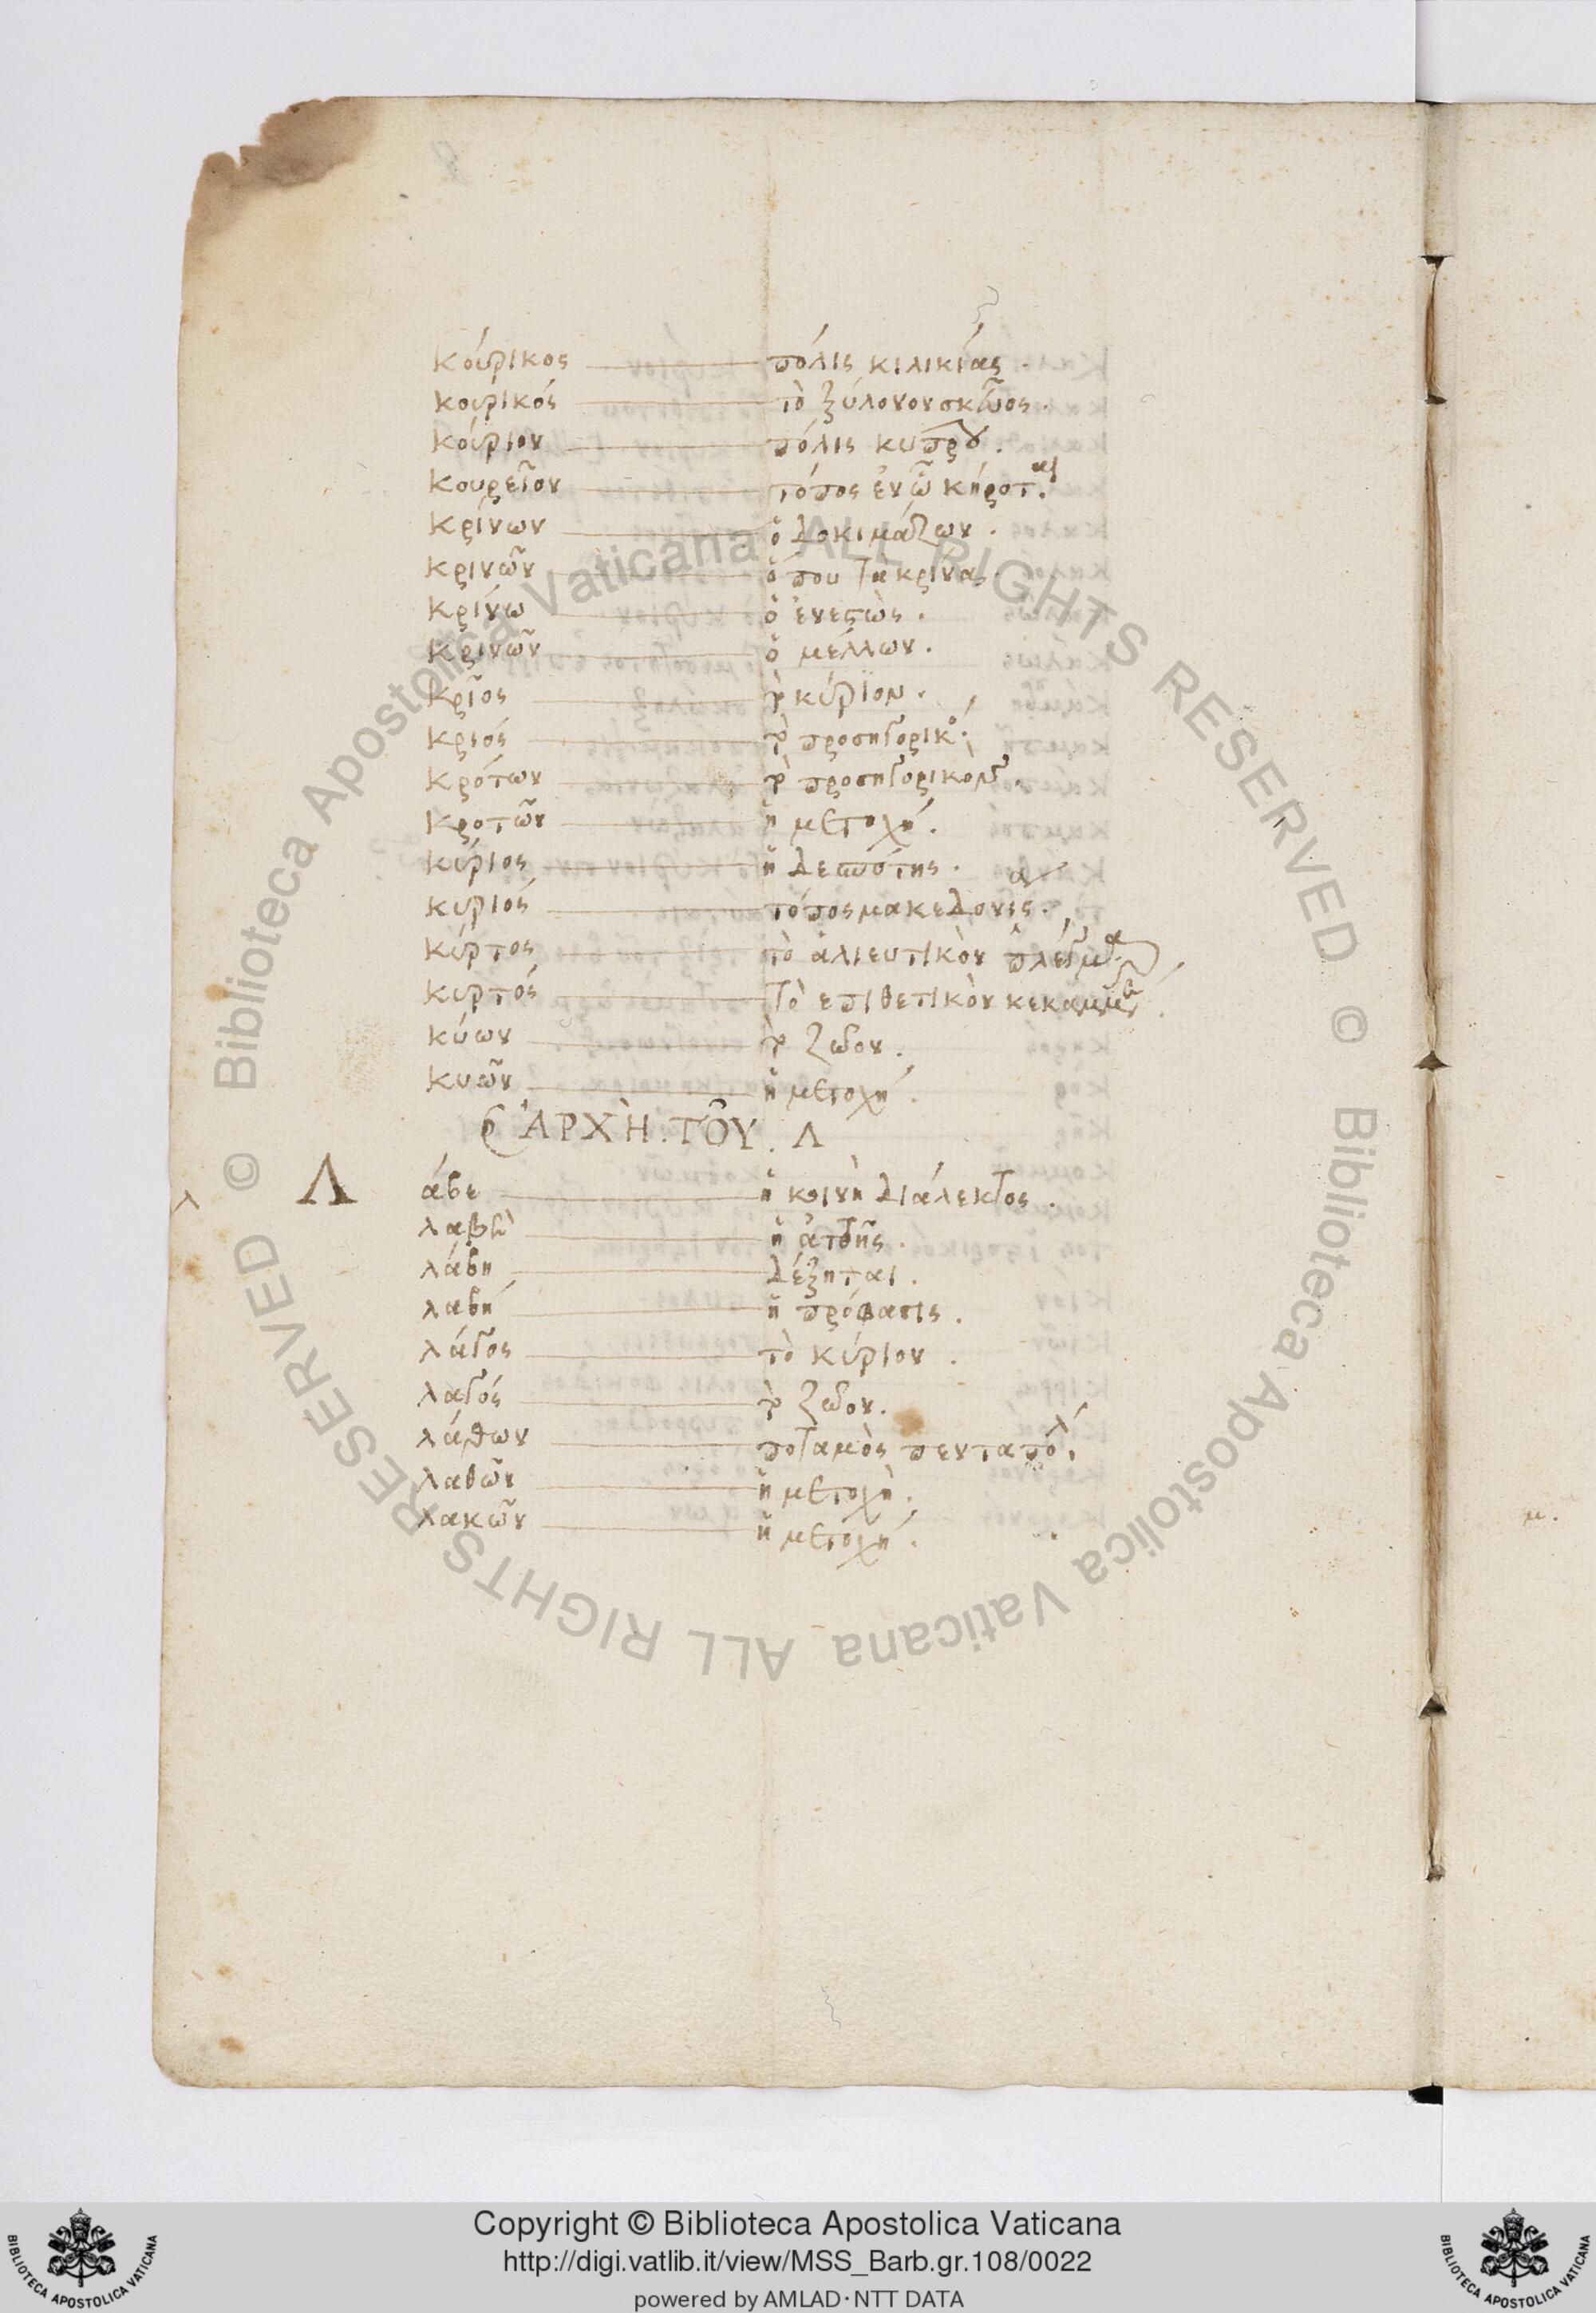 κούρικος πόλις κιλικίας.
κουρικός τὸ ξύλονον σκεῦος.
κούριον πόλις κυπρου.
κουρεῖον τόπος ἐν ὧ κήροτ αι.
κρίνων ὁ δοκιμάζων.
κρινῶν ὅπου τὰ κρίνα.
κρίνω ὁ ἐνεστώς.
κρινῶν ὁ μέλλων.
κρῖος τὸ κύριον.
κριός τὸ προσηγορικο.
κρότων τὸ προσηγορικον.
κροτῶν ἡ μετοχή.
κύριος ἡ δεσπότης.
κυριός τόπος μακεδονίας.
κύρτος τὸ ἁλιευτικὸν πλέγμα
κυρτός τὸ επιθετικὸν
κύων τὸ ζῶον.
κυῶν ἡ μετοχή.
ἈΡΧῊ. ΤΟΥ͂. Λ
Λ άβε ἡ κοινὴ διάλεκτος.
λαβὲ ἡ ἀτθῆς.
λάβη δέξηται.
λαβή ἡ πρόφασις.
λάγος τὸ κύριον.
λαγός τὸ ζῶον.
λάθων ποταμὸς πενταπόλ
λαθῶν ἡ μετοχὴ.
λακῶν ἡ μετοχή.
Copyright © Biblioteca Apostolica Vaticana
http://digi.vatlib.it/view/MSS_Barb.gr.108/0022
powered by AMLAD·NTT DATA
© Biblioteca Apostolica Vaticana ALL RIGHTS RESERVED
© Biblioteca Apostolica Vaticana ALL RIGHTS RESERVED
BIBLIOTECA APOSTOLICA VATICANA
BIBLIOTECA APOSTOLICA VATICANA